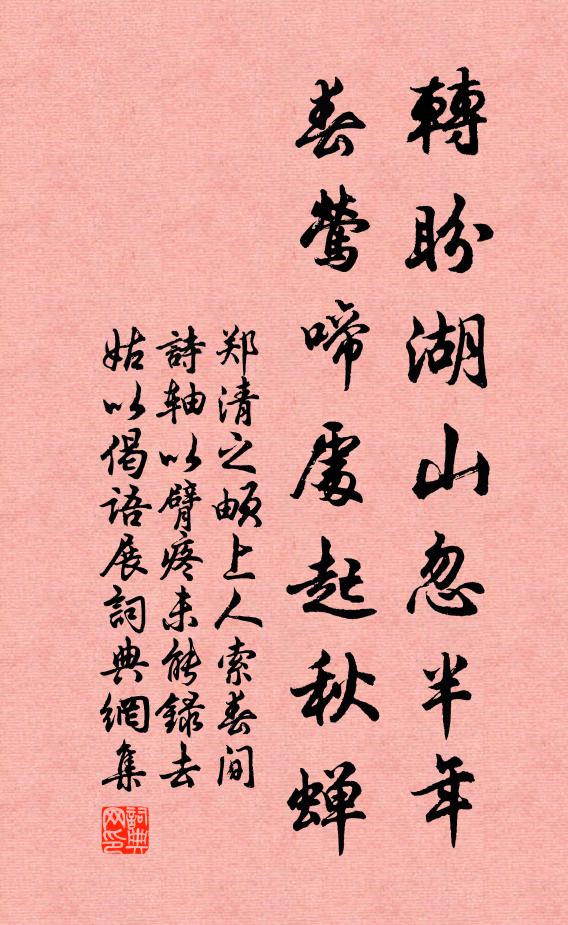 轉盼湖山忽半年
春鶯啼處起秋蟬
郑清之頔上人索春间
詩轴以臂疼未能録去
姑以偈語展詞典網集
詞典网印